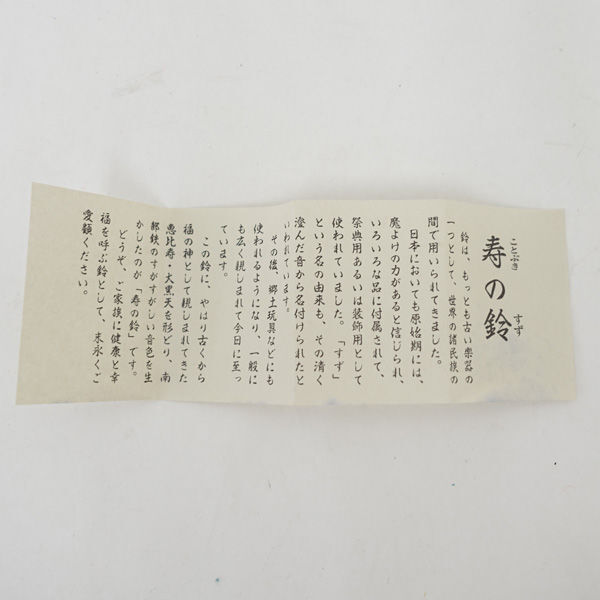 寿の鈴
ことぶき すず
鈴は、もっとも古い楽器の
一つとして、世界の諸民族の
間で用いられてきました。
日本においても原始期には、
魔よけの力があると信じられ、
いろいろな品に付属されて、
祭典用あるいは装飾用として
使われていました。「すず」
という名の由来も、その清く
澄んだ音から名付けられたと
いわれています。
その後、郷土玩具などにも
使われるようになり、一般に
も広く親しまれて今日に至っ
ています。
この鈴に、やはり古くから
福の神として親しまれてきた
恵比寿・大黒天を形どり、南
部鉄のすがすがしい音色を生
かしたのが「寿の鈴」です。
どうぞ、ご家族に健康と幸
福を呼ぶ鈴として、末永くご
愛顧ください。